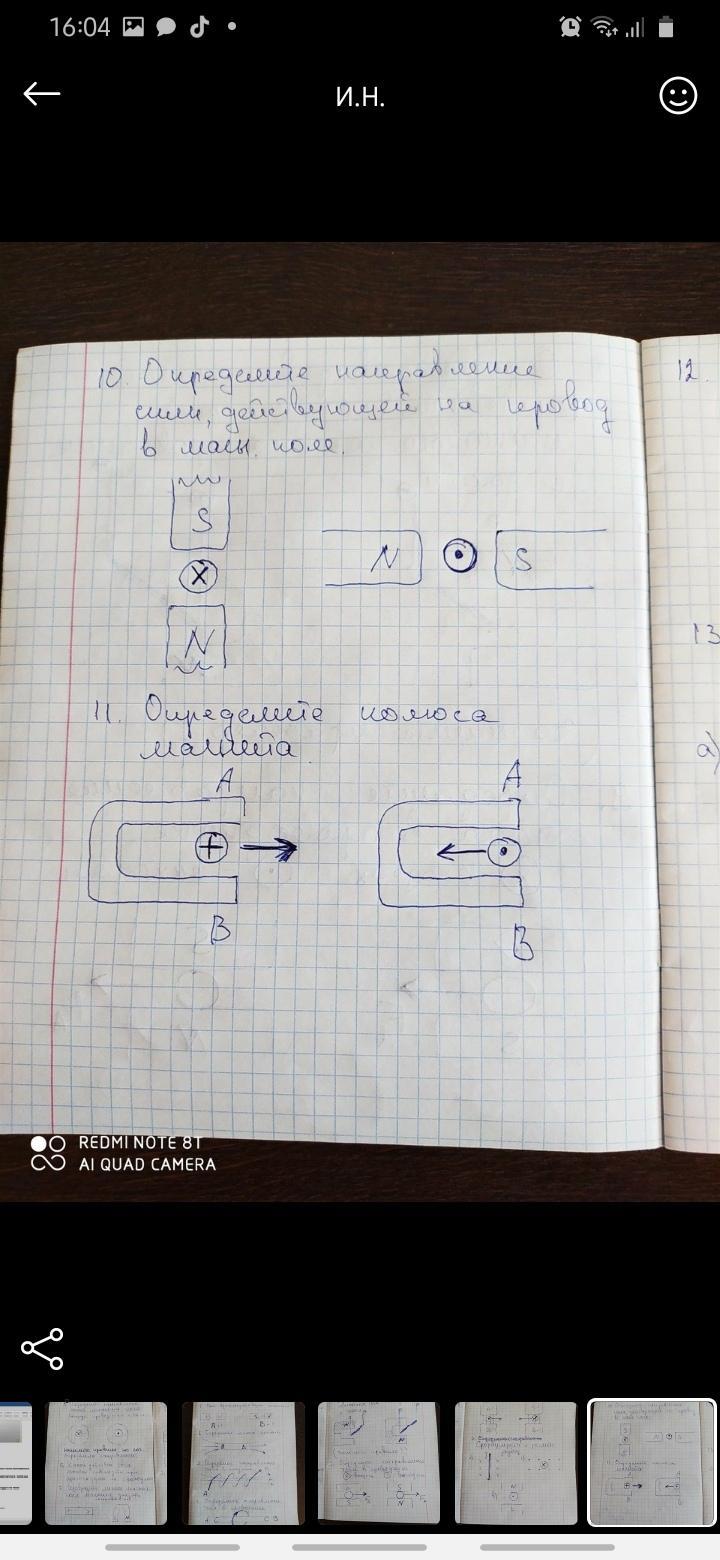 16:04
И.Н.
10. Определите направление
силы, действующей на провод
в магн. поле.
S
N
N S
11. Определите полюса
магнита
A A
B B
12.
13
а)
REDMI NOTE 8T
AI QUAD CAMERA